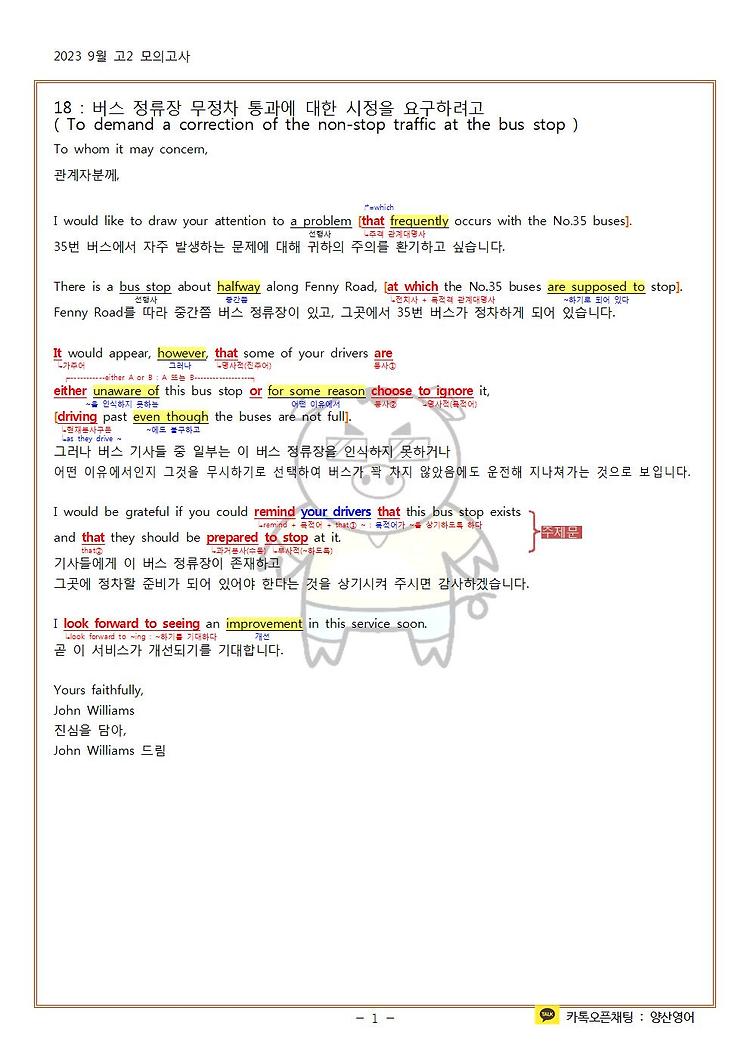 2023 9월 고2 모의고사
18 : 버스 정류장 무정차 통과에 대한 시정을 요구하려고
( To demand a correction of the non-stop traffic at the bus stop )
To whom it may concern,
관계자분께,
=which
I would like to draw your attention to a problem [that frequently occurs with the No.35 buses].
선행사 ↳주격 관계대명사
35번 버스에서 자주 발생하는 문제에 대해 귀하의 주의를 환기하고 싶습니다.
There is a bus stop about halfway along Fenny Road, [at which the No.35 buses are supposed to stop].
선행사 중간쯤 ↳전치사 + 목적격 관계대명사 ~하기로 되어 있다
Fenny Road를 따라 중간쯤 버스 정류장이 있고, 그곳에서 35번 버스가 정차하게 되어 있습니다.
It would appear, however, that some of your drivers are
↳가주어 그러나 ↳명사적(진주어) 동사①
either A or B : A 또는 B
either unaware of this bus stop or for some reason choose to ignore it,
~를 인식하지 못하는 어떤 이유에서 동사② ↳명사적(목적어)
[driving past even though the buses are not full].
↳현재분사구문 ~에도 불구하고
↳as they drive ~
그러나 버스 기사들 중 일부는 이 버스 정류장을 인식하지 못하거나
어떤 이유에서인지 그것을 무시하기로 선택하여 버스가 꽉 차지 않았음에도 운전해 지나쳐가는 것으로 보입니다.
I would be grateful if you could remind your drivers that this bus stop exists
↳remind + 목적어 + that① ~ : 목적어가 ~를 상기하도록 하다
and that they should be prepared to stop at it.
주제문
that② ↳과거분사(수동) ↳부사적(~하도록)
기사들에게 이 버스 정류장이 존재하고
그곳에 정차할 준비가 되어 있어야 한다는 것을 상기시켜 주시면 감사하겠습니다.
I look forward to seeing an improvement in this service soon.
↳look forward to ~ing : ~하기를 기대하다 개선
곧 이 서비스가 개선되기를 기대합니다.
Yours faithfully,
John Williams
진심을 담아,
John Williams 드림
- 1 -
TALK 카톡오픈채팅 : 양산영어